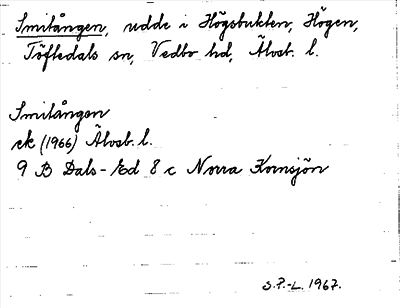 Smitången, udde i Högsbukten, Högen,
Töftedals sn, Vedbo hd, Älvsb. l.
Smitången
ek (1966) Älvsb. l.
9 B Dals-Ed 8 c Norra Kornsjön
S.P.-L. 1967.